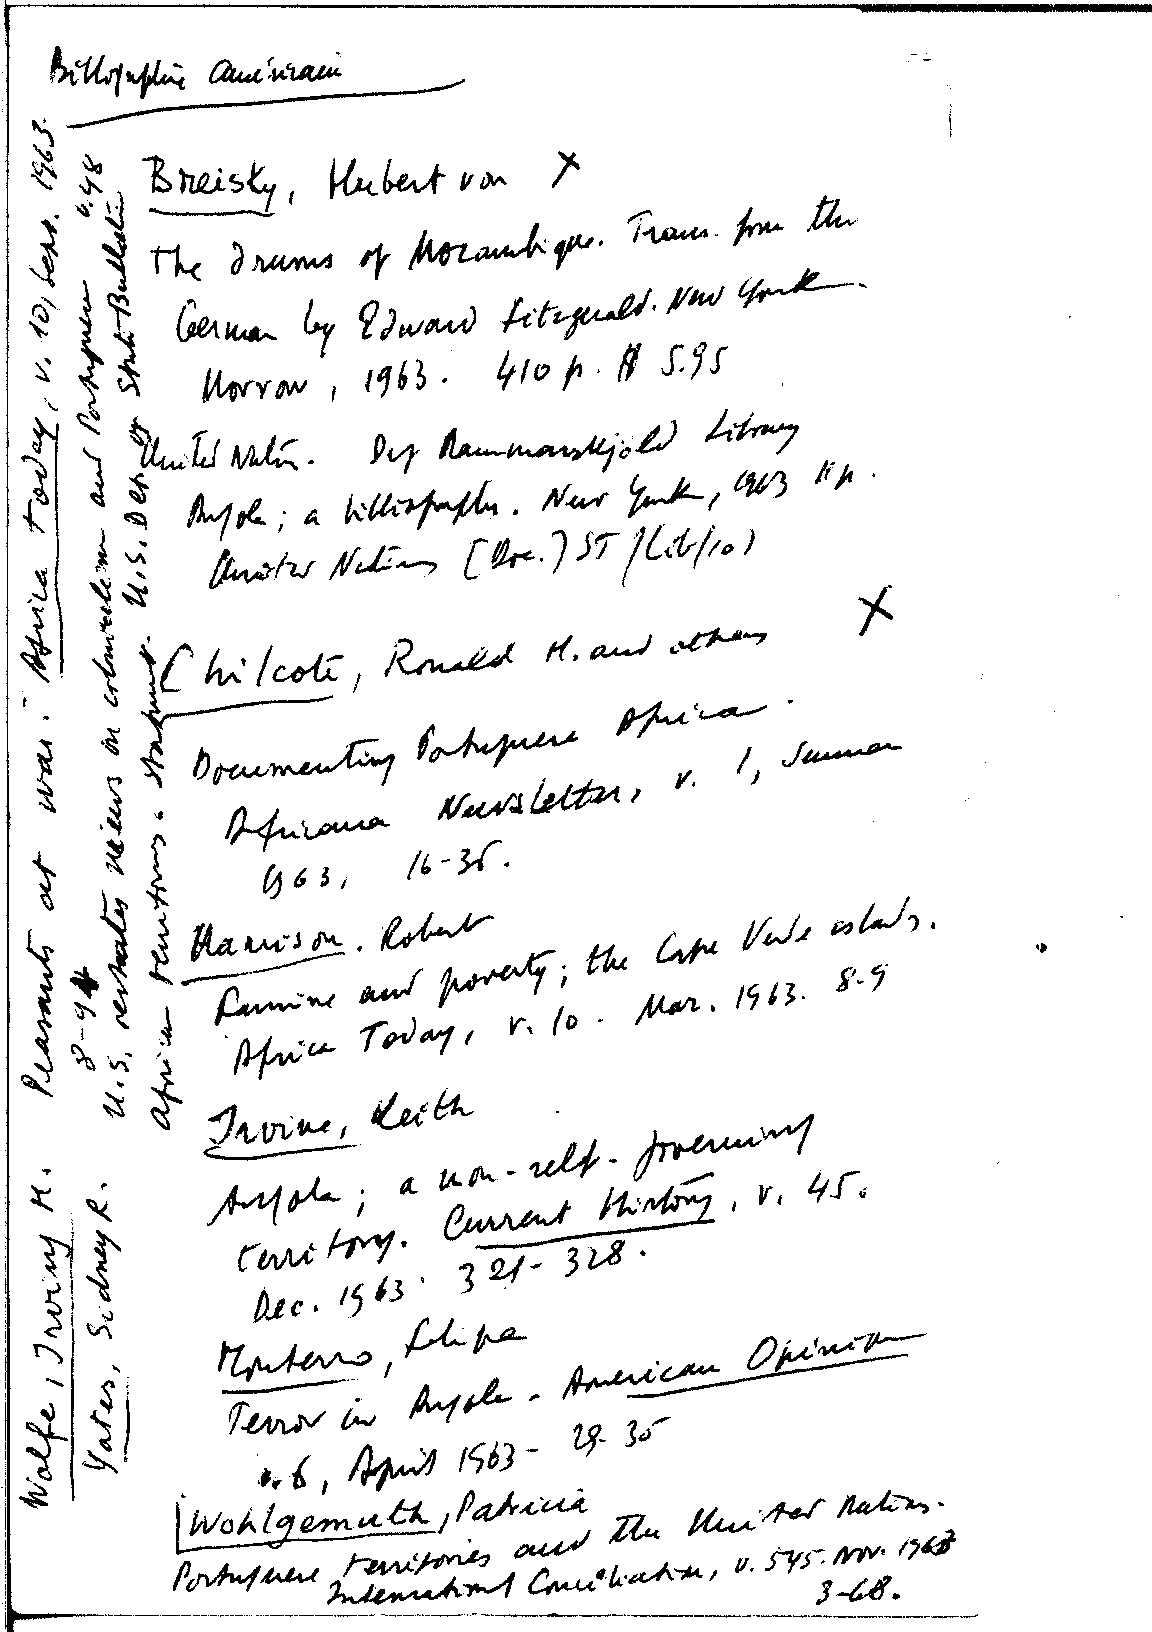 Bibliographie américaine
Breisky, Hubert von X
The Drums of Mozambique. Trans. from the
German by Edward Fitzgerald. New York
Morrow, 1963. 410 p. $ 5.95
United Nation. Dag Hammarskjold Library
Angola; a bibliography. New York, 1963 11 p.
United Nations (Doc.) ST/Lib/10)
Chilcote, Ronald H. and others X
Documenting Portuguese Africa.
Africana Newsletter, v. 1, Summer
1963, 16-36.
Hamison. Robert
Famine and poverty; the Cape Verde islands.
Africa Today, v. 10. Mar. 1963. 8-9
Irvine, Keith
Angola; a non-self-governing
territory. Current History, v. 45.
Dec. 1963. 321-328.
Monterro, Felipa
Terror in Angola. American Opinion
v. 6, April 1963- 29-36
Wohlgemuth, Patricia
Portuguese territories and the United Nations.
International Conciliation, v. 545. Nov. 1963
3-68.
Wolfe, Irving H. Peasants at war. Africa Today, v. 10, Sept. 1963.
8-9
Yates, Sidney R. U.S. restates views on colonialism and Portuguese
African territories. Statement. U.S. Dep. of State Bulletin v. 48